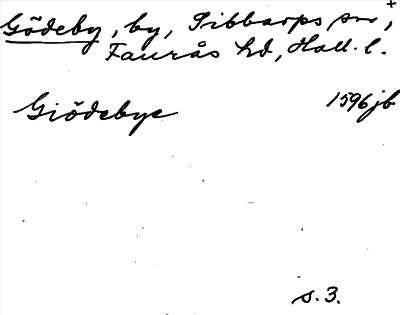 Gödeby, by, Sibbarps sn+,
Faurås hd, Hall. l.
Giödebye 1596 jb
s. 3.